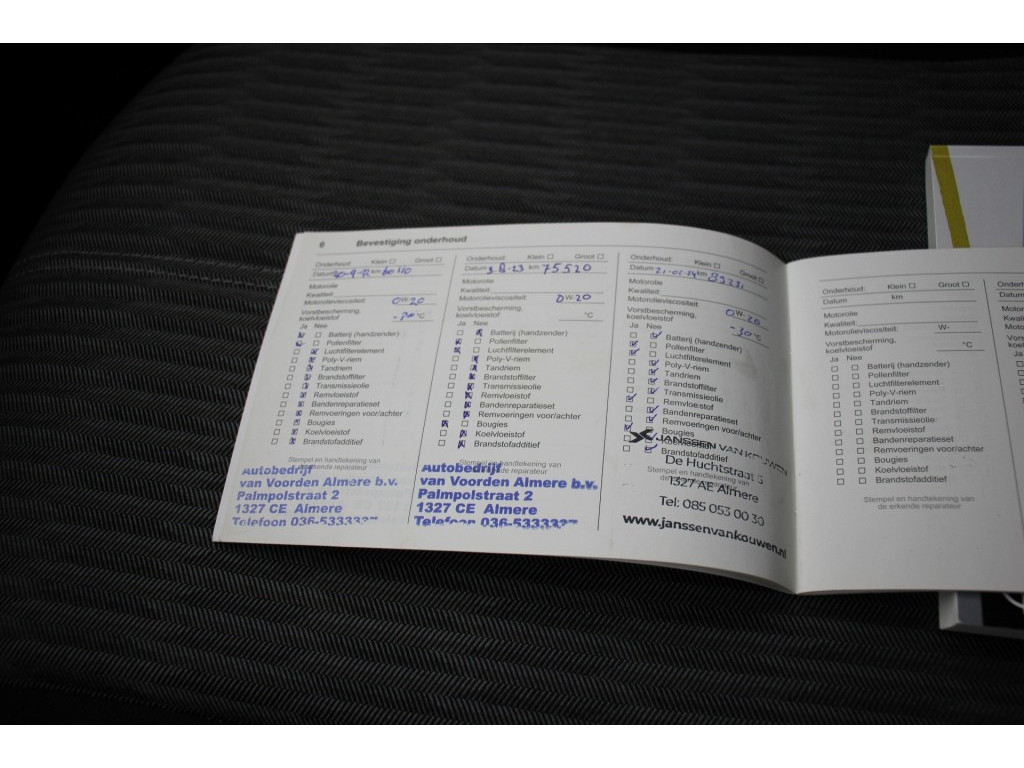 6 Bevestiging onderhoud
Onderhoud: Klein Groot
Datum km
Motorolie
Kwaliteit
Motorolieviscositeit 0W-20
Vorstbescherming,
koelvloeistof °C
Ja Nee
Batterij (handzender)
Pollenfilter
Luchtfilterelement
Poly-V-riem
Tandriem
Brandstoffilter
Transmissieolie
Remvloeistof
Bandenreparatieset
Remvoeringen voor/achter
Bougies
Koelvloeistof
Brandstofadditief
Stempel en handtekening van
de erkende reparateur
Autobedrijf
van Voorden Almere b.v.
Palmpolstraat 2
1327 CE Almere
Telefoon 036-5333327
Onderhoud: Klein Groot
Datum km 75520
Motorolie
Kwaliteit
Motorolieviscositeit 0W-20
°C
Ja Nee
Batterij (handzender)
Pollenfilter
Luchtfilterelement
Poly-V-riem
Tandriem
Brandstoffilter
Transmissieolie
Remvloeistof
Bandenreparatieset
Remvoeringen voor/achter
Bougies
Koelvloeistof
Brandstofadditief
Autobedrijf
van Voorden Almere b.v.
Palmpolstraat 2
1327 CE Almere
Telefoon 036-5333327
Onderhoud: Klein Groot
Datum km
Motorolie
Kwaliteit
Motorolieviscositeit 0W-20
Vorstbescherming,
koelvloeistof -30 °C
Ja Nee
Batterij (handzender)
Pollenfilter
Luchtfilterelement
Poly-V-riem
Tandriem
Brandstoffilter
Transmissieolie
Remvloeistof
Bandenreparatieset
Remvoeringen voor/achter
Bougies
Koelvloeistof
Brandstofadditief
JANSSEN VAN KOUWEN
De Huchtstraat
Stempel en handtekening van
de erkende reparateur
1327 AE Almere
Tel: 085 053 00 30
www.janssenvankouwen.nl
Onderhoud: Klein Groot
Datum km
Motorolie
Kwaliteit:
Motorolieviscositeit: W-
Vorstbescherming,
koelvloeistof °C
Ja Nee
Batterij (handzender)
Pollenfilter
Luchtfilterelement
Poly-V-riem
Tandriem
Brandstoffilter
Transmissieolie
Remvloeistof
Bandenreparatieset
Remvoeringen voor/achter
Bougies
Koelvloeistof
Brandstofadditief
Stempel en handtekening van
de erkende reparateur